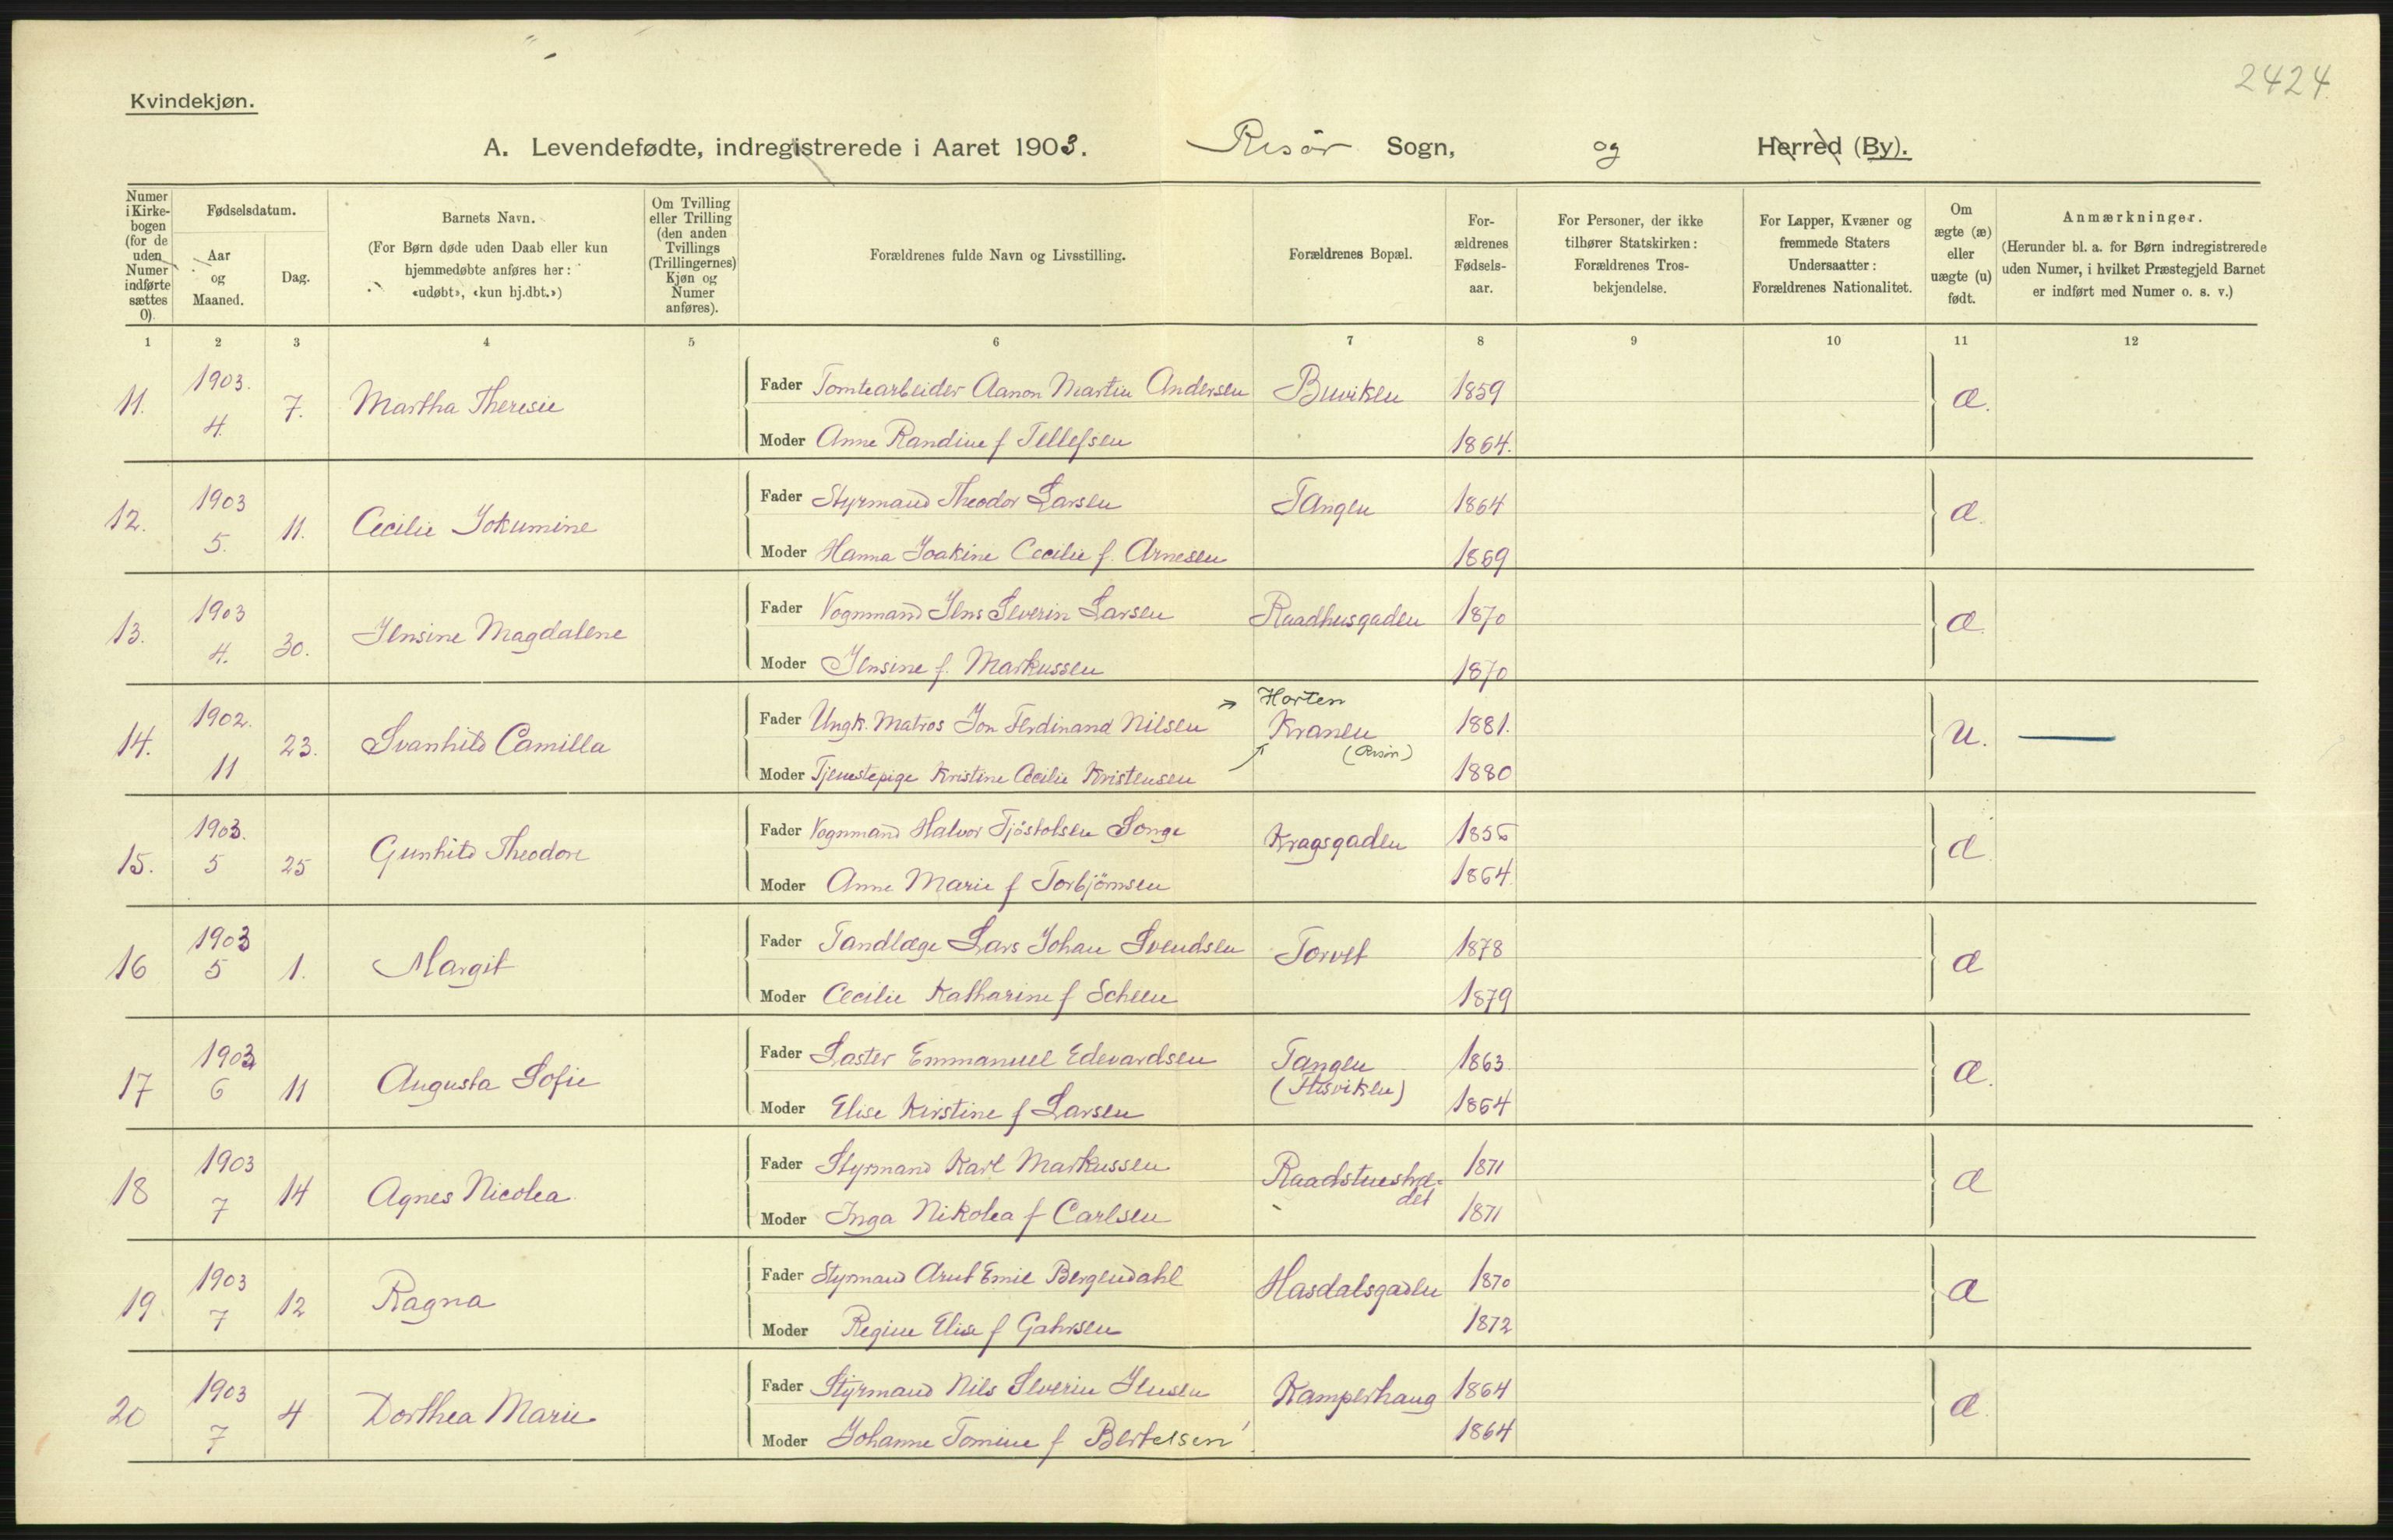 2424
Kvindekjøn.
A. Levendefødte, indregistrerede i Aaret 1903. Risör Sogn, og Herred (By).
Numer i Kirke-bogen (for de uden Numer indførte sættes 0).
Fødselsdatum.
Aar og Maaned.
Dag.
Barnets Navn.
(For Børn døde uden Daab eller kun hjemmedøbte anføres her: «udøbt», «kun hj.dbt.»)
Om Tvilling eller Trilling (den anden Tvillings (Trillingernes) Kjøn og Numer anføres).
Forældrenes fulde Navn og Livsstilling.
Forældrenes Bopæl.
For-ældrenes Fødsels-aar.
For Personer, der ikke tilhører Statskirken: Forældrenes Tros-bekjendelse.
For Lapper, Kvæner og fremmede Staters Undersaatter: Forældrenes Nationalitet.
Om ægte (æ) eller uægte (u) født.
Anmærkninger.
(Herunder bl. a. for Børn indregistrerede uden Numer, i hvilket Præstegjeld Barnet er indført med Numer o. s. v.)
1 2 3 4 5 6 7 8 9 10 11 12
11. 1903. 4. 7. Martha Theresie Fader Tomtearbeider Aanon Martin Andersen Buviken 1859 æ.
Moder Anne Randine f Tellefsen 1864.
12. 1903 5. 11. Cecilie Jokumine Fader Styrmand Theodor Larsen Tangen 1864 æ.
Moder Hanna Joakine Cecilie f. Arnesen 1869
13. 1903 4. 30. Jensine Magdalene Fader Vognmand Jens Severin Larsen Raadhusgaden 1870 æ.
Moder Jensine f. Markussen 1870
Horten
14. 1902. 11 23. Svanhild Camilla Fader Ungk. Matros Jon Ferdinand Nilsen Kranen 1881. u.
(Risör)
Moder Tjenestepige Kristine Cecilie Kristensen 1880
15. 1903. 5 25 Gunhild Theodore Fader Vognmand Halvor Tjöstolsen Songe Kragsgaden 1856 æ
Moder Anne Marie f Torbjörnsen 1864.
16 1903 5 1. Margit Fader Tandlæge Lars Johan Svendsen Torvet 1878 æ
Moder Cecilie Katharine f Scheen 1879
17 1903 6 11 Augusta Sofie Fader Laster Emmanuel Edevardsen Tangen 1863 æ.
Moder Elise Kirstine f Larsen 1864
18 1903 7 14 Agnes Nicolea Fader Styrmand Karl Markussen Raadstuestræ-det 1871 æ
Moder Inga Nikolea f Carlsen 1871
19. 1903 7 12 Ragna Fader Styrmand Arnt Emil Bergendahl Hasdalsgaden 1870 æ
Moder Regine Elise f Gahrsen 1872
20 1903 7 4 Dorthea Marie Fader Styrmand Nils Severin Jensen Kamperhaug 1864 æ.
Moder Johanne Tomine f Bertelsen 1864